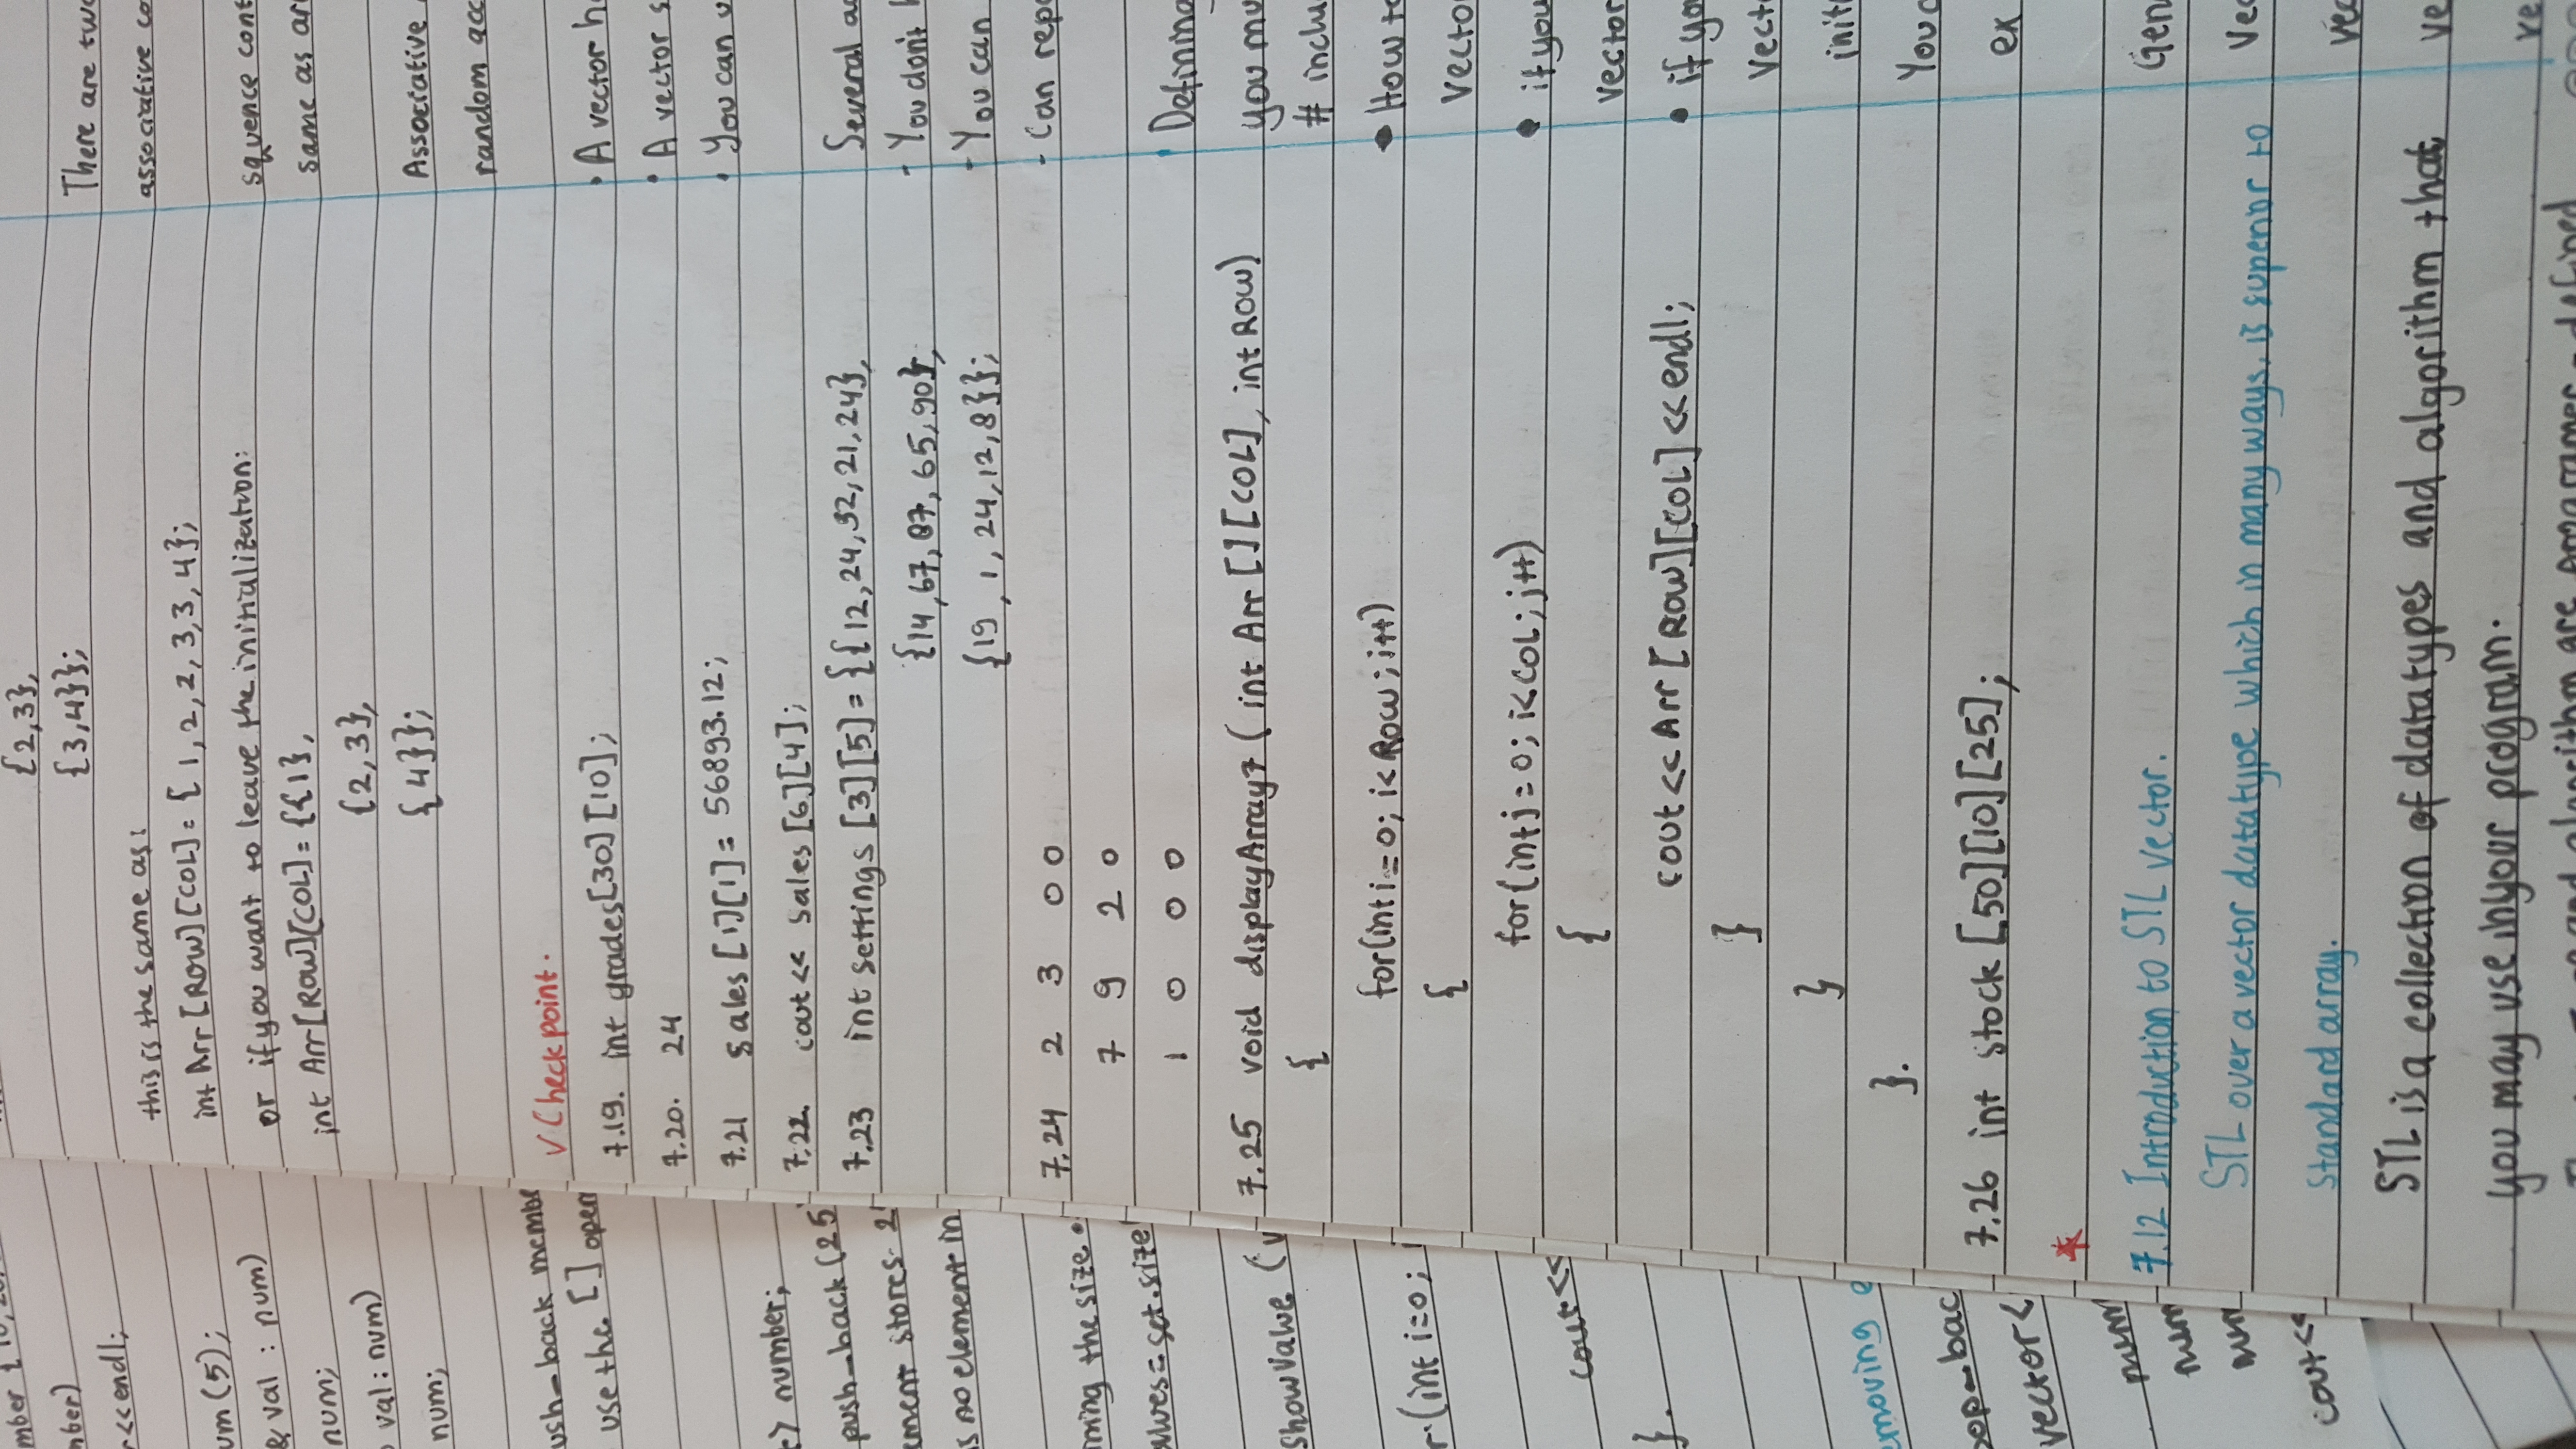 mber { 10, 20,
mber)
r<<endl;
um (5);
& val : num)
num;
val : num)
num;
ush_back membe
use the [] open
t> number;
push_back (25
ement stores 2
is no element in
ming the size
alues = set.size
showValue (v
r (int i=0;
cout <<
}.
emoving e
pop_bac
vector <
num
num
num
cout <<
{2,3},
{3,4}};
this is the same as:
int Arr [ROW][COL] = { 1, 2, 2, 3, 3, 4};
or if you want to leave the initialization:
int Arr [ROW][COL] = {{1},
{2, 3},
{4}};
√ Checkpoint.
7.19. int grades[30][10];
7.20. 24
7.21 sales [1][1] = 56893.12;
7.22. cout << sales [6][4];
7.23 int settings [3][5] = {{12, 24, 32, 21, 24},
{14, 67, 87, 65, 90},
{19, 1, 24, 12, 8}};
7.24 2 3 0 0
7 9 2 0
1 0 0 0
7.25 void displayArray7 ( int Arr [][COL], int Row)
{
for(int i=0; i< Row; i++)
{
for(int j=0; i<COL; j++)
{
cout << Arr [ROW][COL] << endl;
}
}
}.
7.26 int stock [50][10][25];
*
7.12 Introduction to STL vector.
STL over a vector datatype which in many ways. is superior to
standard array.
STL is a collection of datatypes and algorithm that
you may use in your program.
and algorithm are programmer - defined
There are two
associative co
squence cont
same as ar
Associative
random acc
• A vector h
• A vector s
• You can u
Several a
- You don't
- You can
- Can repo
Defining
you mu
# inclu
• How to
vecto
• if you
vector
• if yo
Vect
initi
You c
ex
Gen
Vec
vec
ve
ve